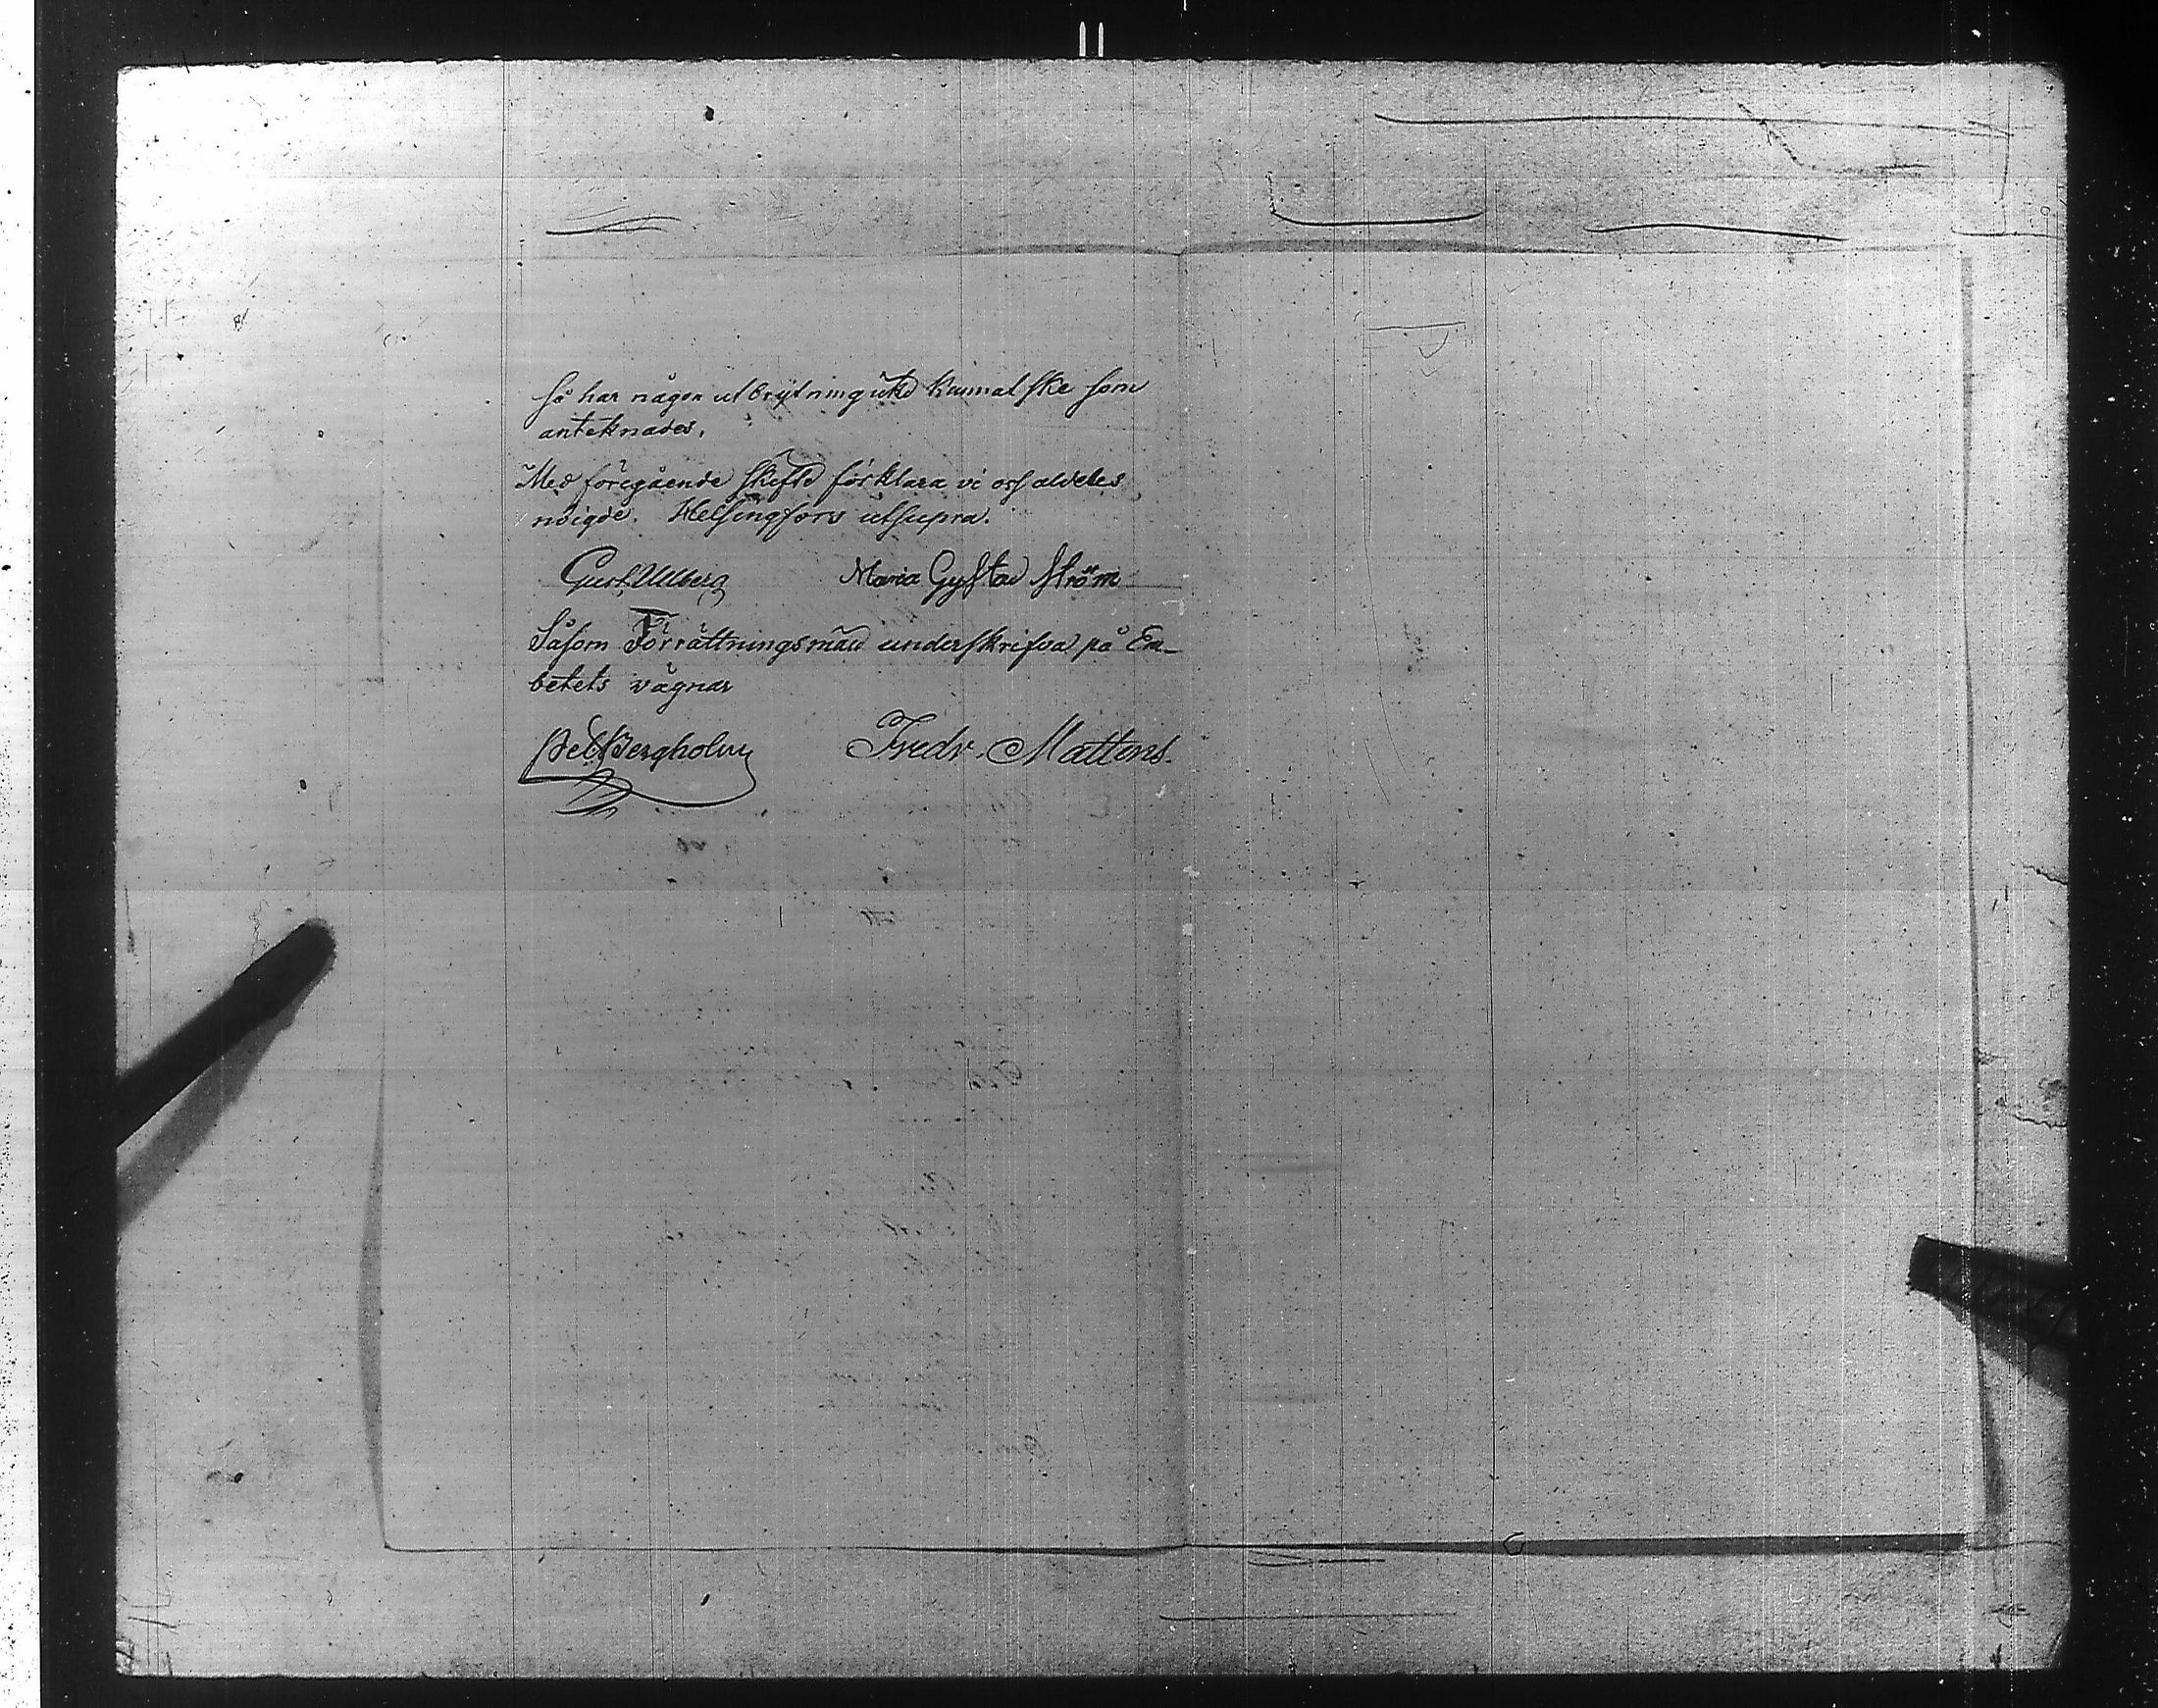 så har någon utbrytning icke kunnat ske som
anteknades.
Med föregående skifte förklara vi oss aldeles
nöigde. Helsingfors utsupra.
Gust. Ullberg Maria Gustav Ström
Såsom Förrättningsmän underskrifva på Em-
betets vägnar
Pet. Bergholm Fredr. Mattens.